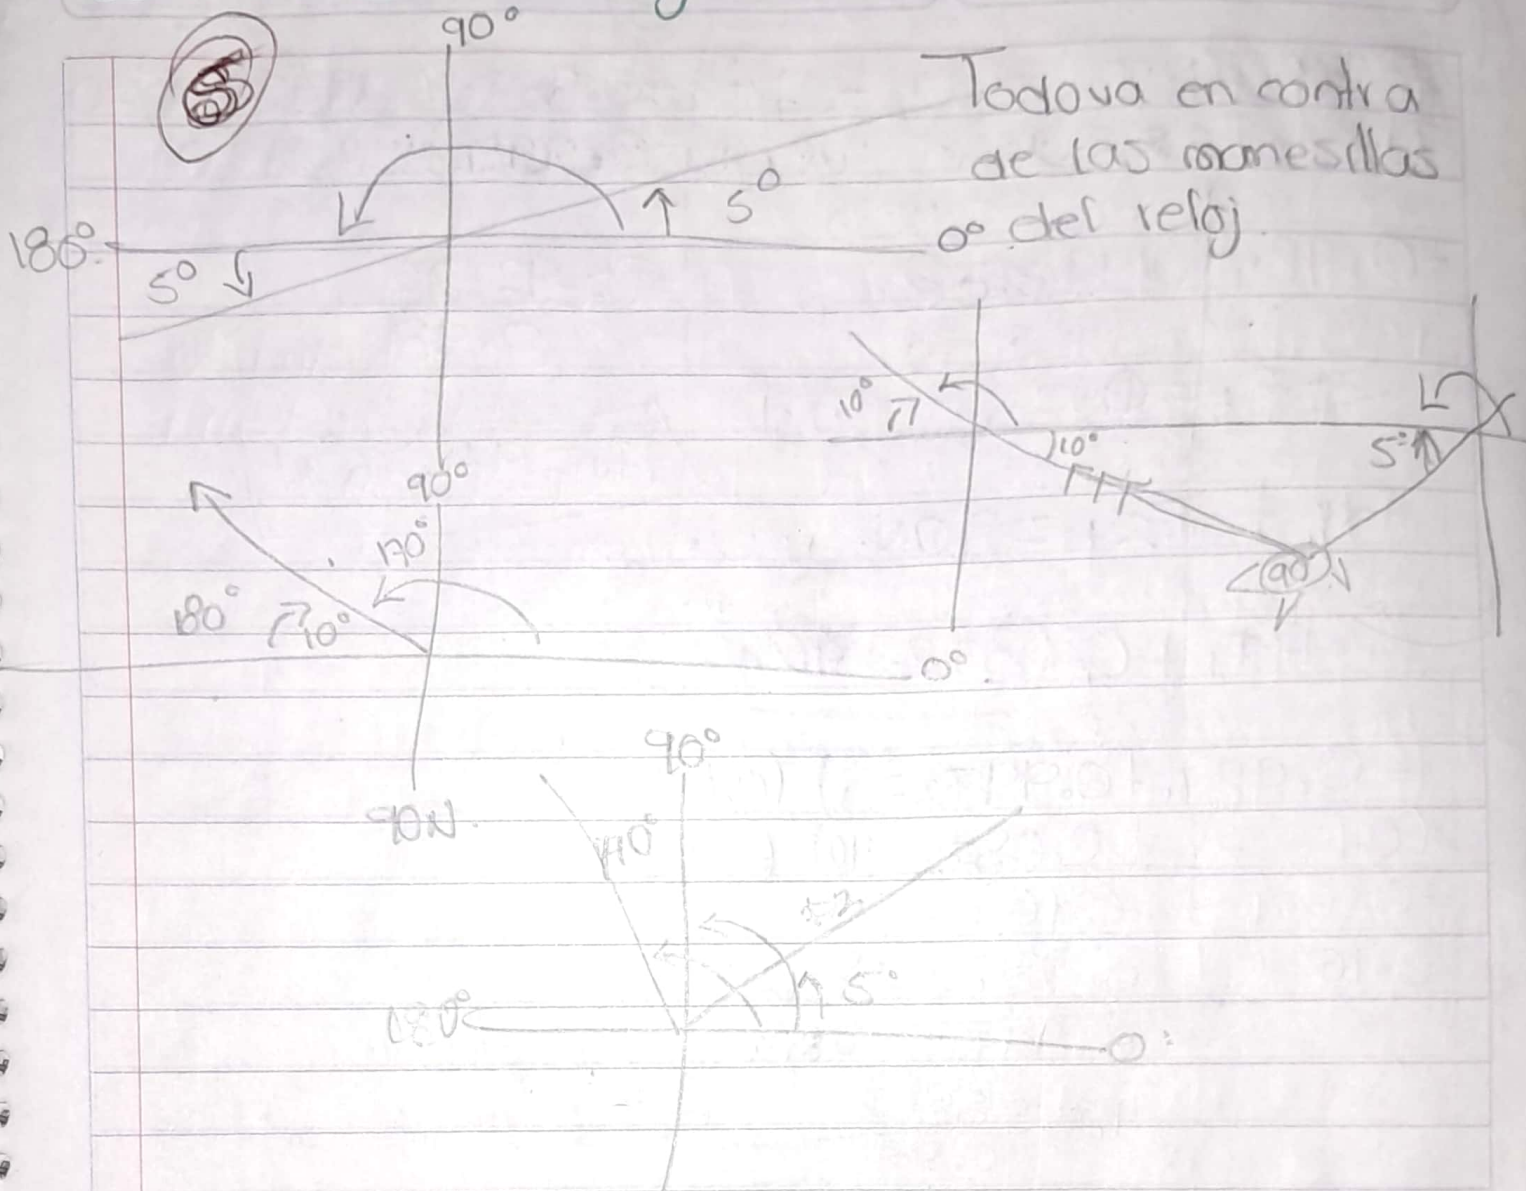 90°
5
Todo va en contra
de las manesillas
del reloj.
5°
180°
0°
5°
10°
10°
5°
90°
90°
170°
180°
10°
0°
90N.
90°
110°
5°
180°
0°